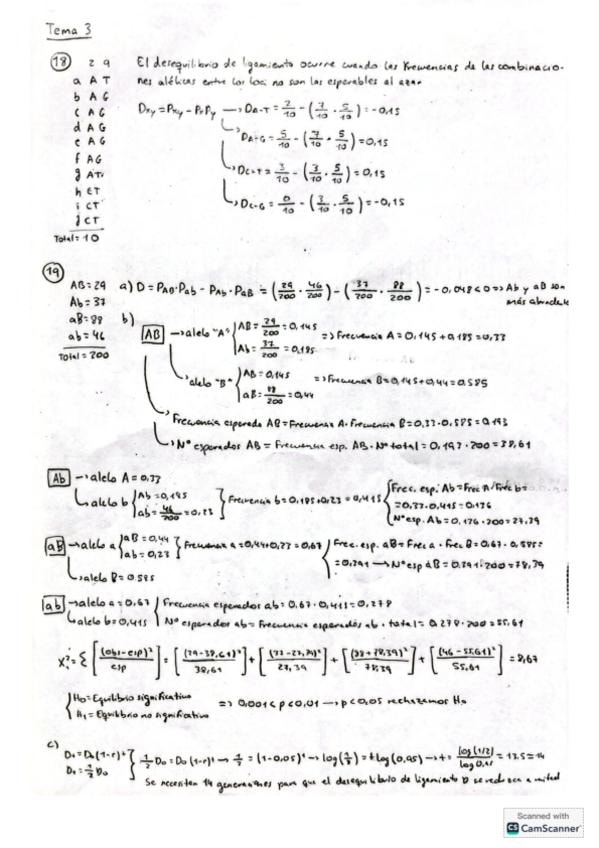 Tema 3
18) 2 9
El desequilibrio de ligamiento ocurre cuando las frecuencias de las combinacio-
nes alélicas entre los loci no son las esperables al azar
a A T
b A G
c A G
d A G
e A G
f A G
g A T
h C T
i C T
j C T
Total = 10
Dxy = Pxy - PxPy → DA-T = 2/10 - (7/10 · 5/10) = -0,15
DA-G = 5/10 - (7/10 · 5/10) = 0,15
DC-T = 3/10 - (3/10 · 5/10) = 0,15
DC-G = 0/10 - (3/10 · 5/10) = -0,15
19)
AB = 29
Ab = 37
aB = 88
ab = 46
Total = 200
a) D = PAB · Pab - PAb · PaB = (29/200 · 46/200) - (37/200 · 88/200) = -0,048 < 0 => Ab y aB son
más
b)
AB → alelo "A" { AB = 29/200 = 0,145
Ab = 37/200 = 0,185 => Frecuencia A = 0,145 + 0,185 = 0,33
alelo "B" { AB = 0,145
aB = 88/200 = 0,44 => Frecuencia B = 0,145 + 0,44 = 0,585
Frecuencia esperada AB = Frecuencia A · Frecuencia B = 0,33 · 0,585 = 0,193
Nº esperados AB = Frecuencia esp. AB · Nº total = 0,193 · 200 = 38,61
Ab → alelo A = 0,33
alelo b { Ab = 0,185
ab = 46/200 = 0,23 } Frecuencia b = 0,185 + 0,23 = 0,415
{ Frec. esp. Ab = Frec A · Frec b =
= 0,33 · 0,415 = 0,136
Nº esp. Ab = 0,136 · 200 = 27,39
aB → alelo a { aB = 0,44
ab = 0,23 } Frecuencia a = 0,44 + 0,23 = 0,67
alelo B = 0,585
{ Frec. esp. aB = Frec a · Frec B = 0,67 · 0,585 =
= 0,391 → Nº esp aB = 0,391 · 200 = 78,39
ab → alelo a = 0,67
alelo b = 0,415
{ Frecuencia esperados ab = 0,67 · 0,415 = 0,278
Nº esperados ab = Frecuencia esperados ab · total = 0,278 · 200 = 55,61
= Σ [(obs-esp)²/esp] = [(29-38,61)²/38,61] + [(37-27,39)²/27,39] + [(88-78,39)²/78,39] + [(46-55,61)²/55,61] = 8,67
{ H0 = Equilibrio significativo
H1 = Equilibrio no significativo => 0,001 < p < 0,01 → p < 0,05 rechazamos H0
c)
Dt = D0(1-r)ᵗ
Dt = 1/2 D0
} 1/2 D0 = D0(1-r)ᵗ → 1/2 = (1-0,05)ᵗ → log(1/2) = t log(0,95) → t = log(1/2)/log 0,95 = 13,5 ≈ 14
Se necesitan 14 generaciones para que el desequilibrio de ligamiento D se reduzca a mitad
Scanned with
CS CamScanner